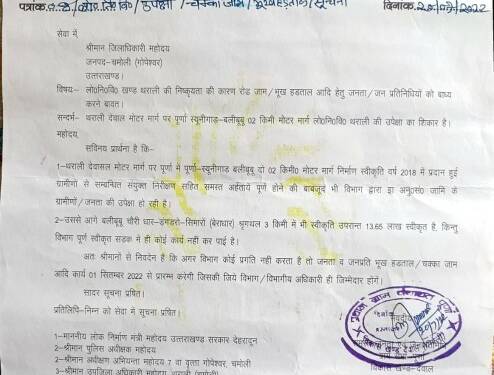 पत्रांक / उपेक्षा / चक्का जाम / भूखहड़ताल / सूचना दिनांक. 2022
सेवा में,
श्रीमान जिलाधिकारी महोदय
जनपद-चमोली (गोपेश्वर)
उत्तराखण्ड।
विषय- लो0नि0वि0 खण्ड थराली की निष्कृयता की कारण रोड जाम/भूख हडताल आदि हेतु जनता/जन प्रतिनिधियों को बाध्य
करने बावत।
सन्दर्भ- थराली देवाल मोटर मार्ग पर पूर्णा स्यूनीगाड-बलीबूबू 02 किमी मोटर मार्ग लो0नि0वि0 थराली की उपेक्षा का शिकार है।
महोदय,
सविनय प्रार्थना है कि-
1-थराली देवासल मोटर मार्ग पर में पूर्णा-स्यूनीगाड बलीबूबू दो 02 किमी0 मोटर मार्ग निर्माण स्वीकृति वर्ष 2018 में प्रदान हुई
ग्रामीणों से सम्बन्धित संयुक्त निरिक्षण सहित समस्त अर्हतायें पूर्ण होने की बाबजूद भी विभाग द्वारा इा अनु0स0 जामि के
ग्रामीणों/जनता की उपेक्षा हो रही है।
2-उससे आगे बलीबूबू चौरी धार-डंगडरो-सिमारों (बेराधार) श्रृगथल 3 किमी में भी स्वीकृति उपरान्त 13.65 लाख स्वीकृत है, किन्तु
विभाग पूर्ण स्वीकृत सडक में ही कोई कार्य नहीं कर पाई है।
अतः श्रीगानों से निवदेन है कि अगर विभाग कोई प्रगति नहीं करता है तो जनता व जनप्रति भूख हडताल/चक्का जाम
आदि कार्य 01 सितम्बर 2022 से प्रारम्भ करेगी जिसकी जिये विभाग/विभागीय अधिकारी ही जिम्मेदार होंगें।
सादर सूचना प्रषित।
प्रतिलिपि-निम्न को सेवा में सूचना प्रषित।
भवदीय
1-माननीय लोक निर्माण मंत्री महोदय उत्तराखण्ड सरकार देहरादून
2-श्रीमान पुलिस अधीक्षक महोदय
2-श्रीमान अधीक्षण अभियन्ता महोदय 7 वा वृतता गोपेश्वर, चमोली
3-श्रीमान उपजिला अधिकारी महोदय
विकास खण्ड-देवाल